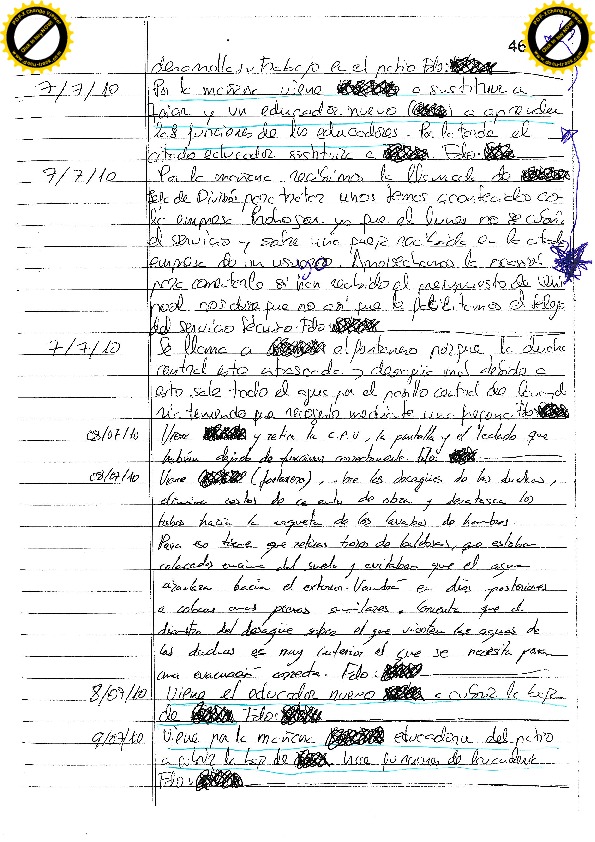 46
desarrolla su trabajo en el patio Fdo:
7/7/10 Por la mañana viene a sustituir a
y un educador nuevo ( ) a aprender
las funciones de los educadores. Por la tarde el
citado educador sustituye a Fdo:
7/7/10 Por la mañana recibimos la llamada de
Jefe de División para tratar unos temas acontecidos con
la empresa ya que el lunes no se
el servicio y sobre una queja recibida en la citada
empresa de un usuario. Aprovechamos la ocasión
para comentarle si han recibido el presupuesto de
nos dice que no así que le facilitamos el
del servicio técnico. Fdo:
7/7/10 Se llama a el fontanero porque la ducha
central esta atascada y desagua mal debido a
esto sale todo el agua por el pasillo central de
teniendo que recogerlo mediante una fregona Fdo:
08/07/10 Viene y retira la C.P.U, la pantalla y el teclado que
habían dejado de funcionar correctamente. Fdo:
08/07/10 Viene (fontanero), abre los desagües de las duchas,
elimina restos de cemento de obra y desatasca los
tubos hacia la arqueta de los lavabos de hombres.
Para eso tiene que retirar trozos de baldosas, que estaban
colocados encima del suelo y evitaban que el agua
hacia el exterior. Vendrá en días posteriores
a colocar unas piezas similares. Comenta que el
diametro del desagüe sobre el que vierten las aguas de
las duchas es muy inferior al que se necesita para
una evacuación correcta. Fdo:
8/07/10 Viene el educador nuevo a cubrir la baja
de Fdo:
9/07/10 Viene por la mañana educadora del patio
a cubrir la baja de hace funciones de
Fdo: